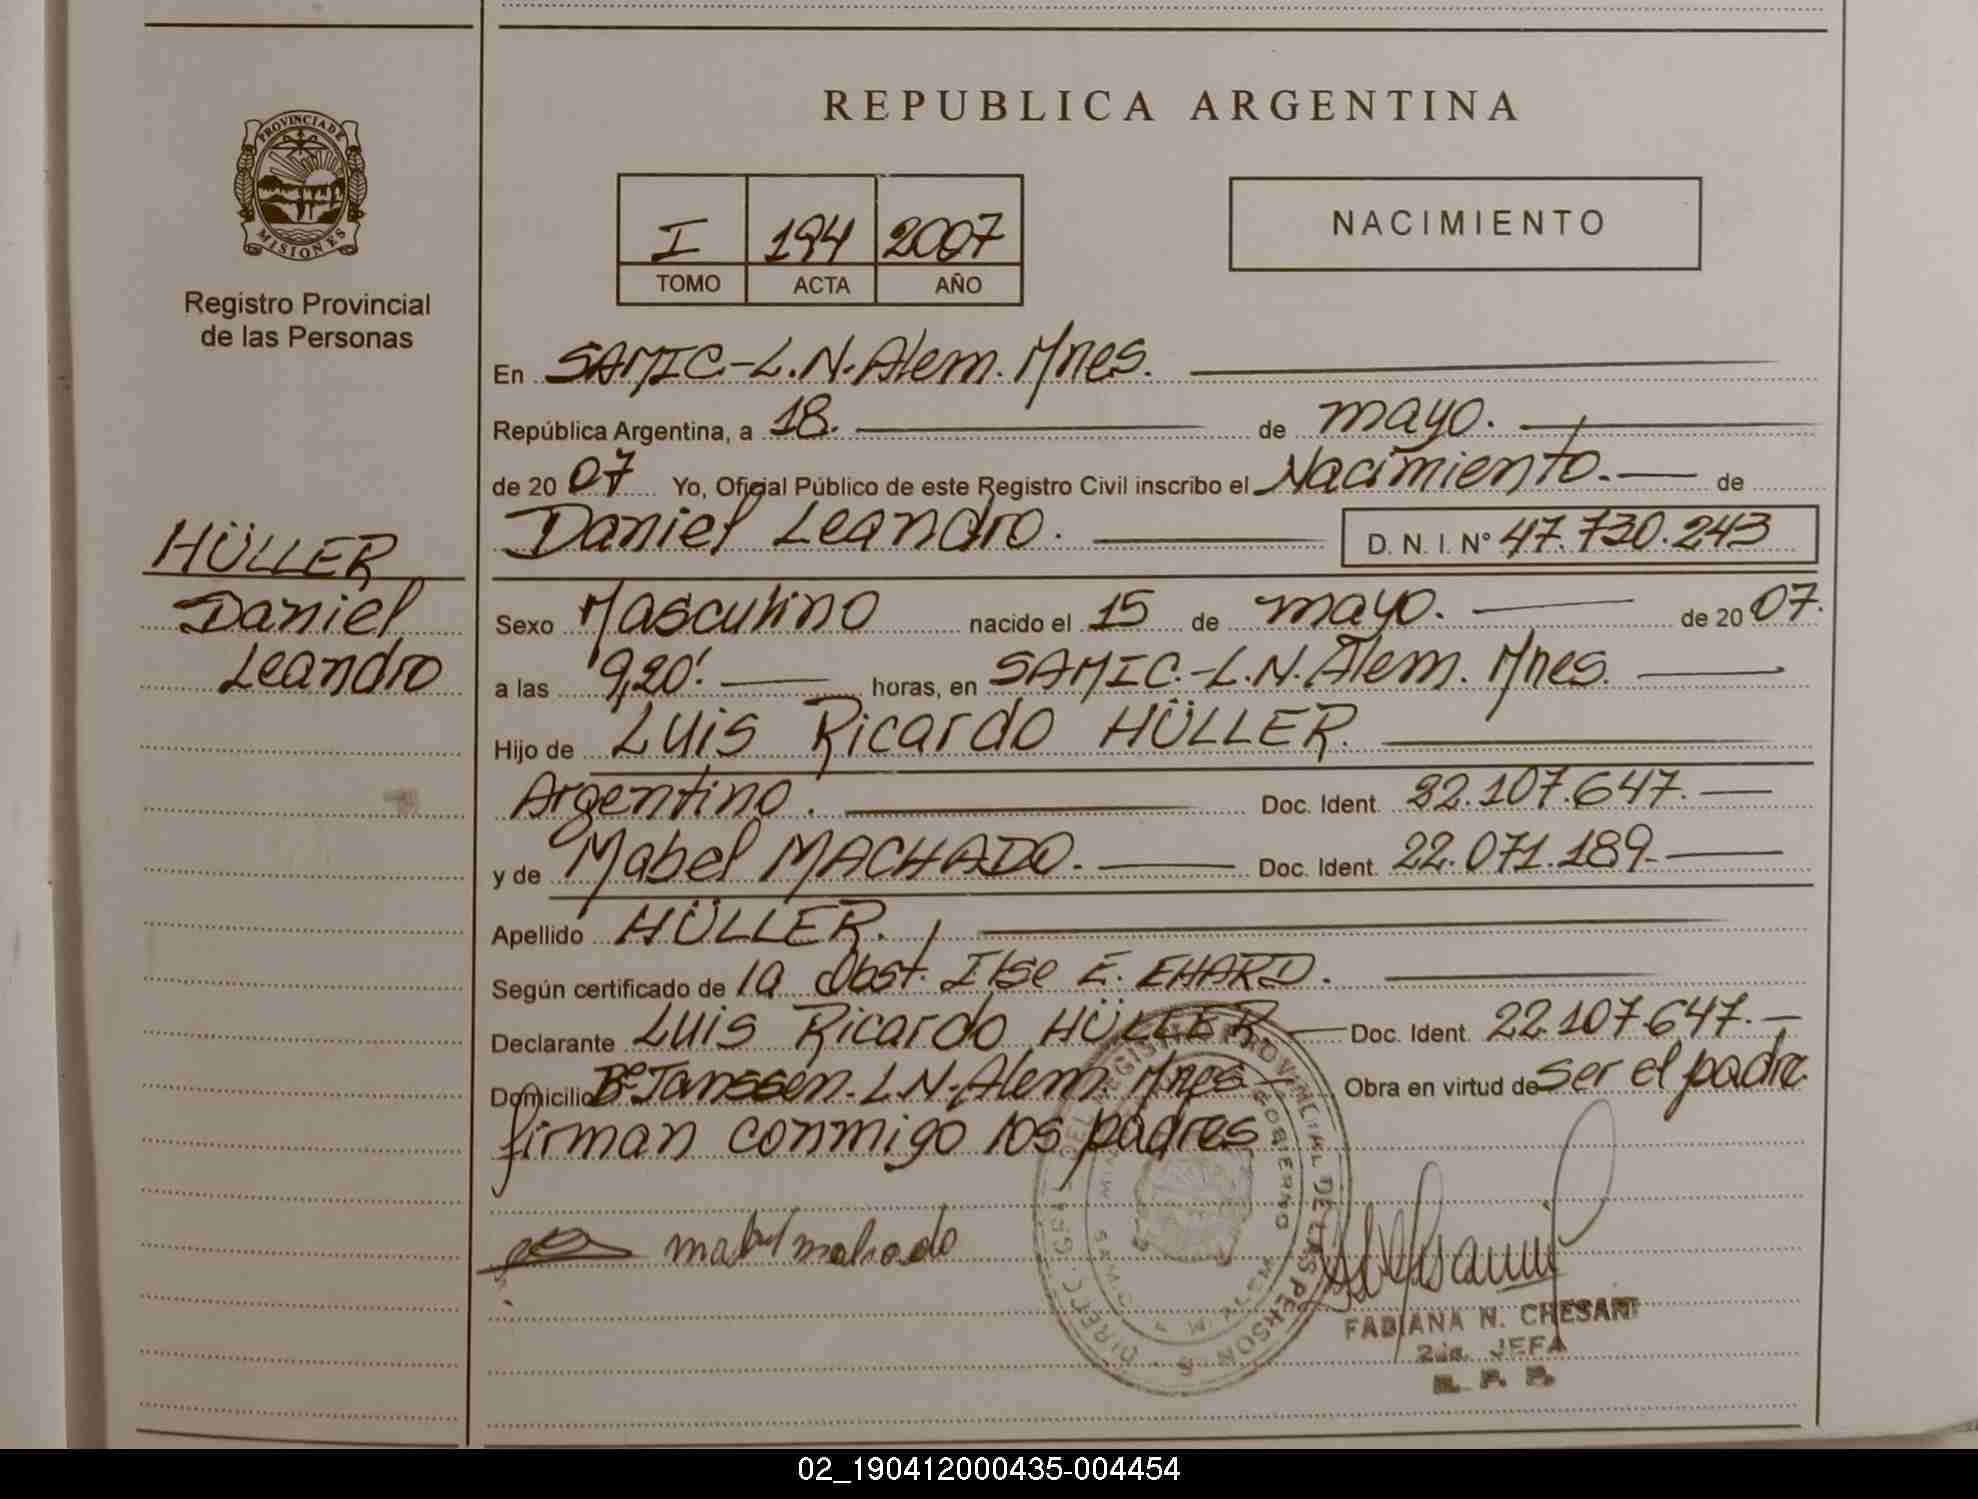 REPUBLICA ARGENTINA
PROVINCIA DE
MISIONES
Registro Provincial
de las Personas
I 194 2007
TOMO ACTA AÑO
NACIMIENTO
En SAMIC.-L.N.Alem. Mnes.
República Argentina, a 18. de mayo.
de 2007 Yo, Oficial Público de este Registro Civil inscribo el Nacimiento. de
Daniel Leandro. D. N. I. N° 47.730.243
HÜLLER
Daniel
Leandro
Sexo Masculino nacido el 15 de mayo. de 2007.
a las 9,20' horas, en SAMIC.-L.N.Alem. Mnes.
Hijo de Luis Ricardo HÜLLER.
Argentino. Doc. Ident. 22.107.647.
y de Mabel MACHADO. Doc. Ident. 22.071.189.
Apellido HÜLLER.
Según certificado de la Obst. Ilse E. EHARD.
Declarante Luis Ricardo HÜLLER Doc. Ident. 22.107.647.
Domicilio B° Janssen. L.N.Alem. Mnes. Obra en virtud de ser el padre.
firman conmigo los padres
mabel machado
FABIANA N. CHESARI
2da. JEFA
R. P. P.
02_190412000435-004454